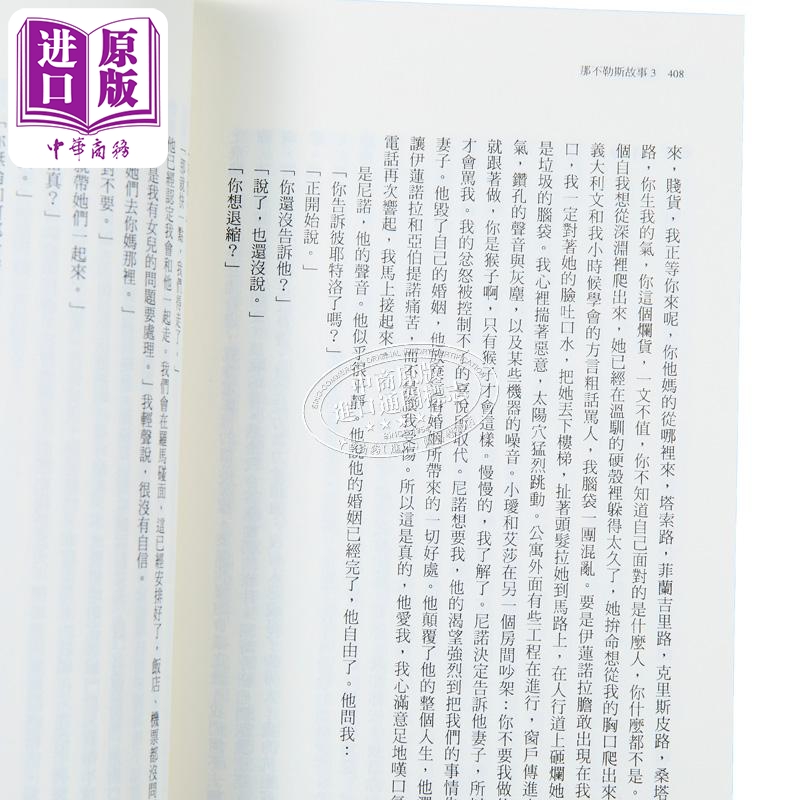 进口
原版
中華商務
那不勒斯故事 3 408
來,賤貨,我正等你來呢,你他媽的從哪裡來,塔索路,菲蘭吉里路,克里斯皮路,桑塔
路,你生我的氣,你這個爛貨,一文不值,你不知道自己面對的是什麼人,你什麼都不是。
個自我想從深淵裡爬出來,她已經在溫馴的硬殼裡躲得太久了,她拚命想從我的胸口爬出來
義大利文和我小時候學會的方言粗話罵人,我腦袋一團混亂。要是伊蓮諾拉膽敢出現在我
口,我一定對著她的臉吐口水,把她丟下樓梯,扯著頭髮拉她到馬路上,在人行道上砸爛她
是垃圾的腦袋。我心裡揣著惡意,太陽穴猛烈跳動。公寓外面有些工程在進行,窗戶傳進
氣,鑽孔的聲音與灰塵,以及某些機器的噪音。小璦和艾莎在另一個房間吵架:你不要我做
就跟著做,你是猴子啊,只有猴子才會這樣。慢慢的,我了解了。尼諾決定告訴他妻子,所
才會罵我。我的忿怒被控制不了的喜悅所取代。尼諾想要我,他的渴望強烈到把我們的事情
妻子。他毀了自己的婚姻,他放棄這樁婚姻所帶來的一切好處。他顛覆了他的整個人生,他
讓伊蓮諾拉和亞伯提諾痛苦,而不是讓我受傷。所以這是真的,他愛我,我心滿意足地嘆口
電話再次響起,我馬上接起來
是尼諾,他的聲音。他似乎很冷靜。他說他的婚姻已經完了,他自由了。他問我:
「你告訴彼耶特洛了嗎?」
「正開始說。」
「你還沒告訴他?」
「說了,也還沒說。」
「你想退縮?」
點,我們得走了。」
他已經認定我會和他一起走。我們會在羅馬碰面,這已經安排好了,飯店、機票都沒問
是我有女兒的問題要處理。」我輕聲說,很沒有自信。
她們去你媽那裡。」
對不要。」
就帶她們一起來。」
真?」